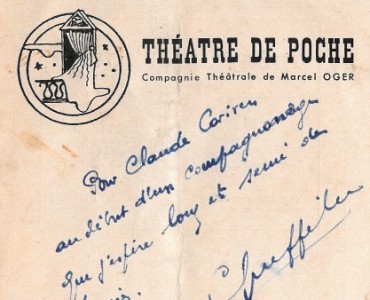 THÉATRE DE POCHE
Compagnie Théâtrale de Marcel OGER
Pour Claude
au début d'un compagnonnage
que j'espère long et semé de